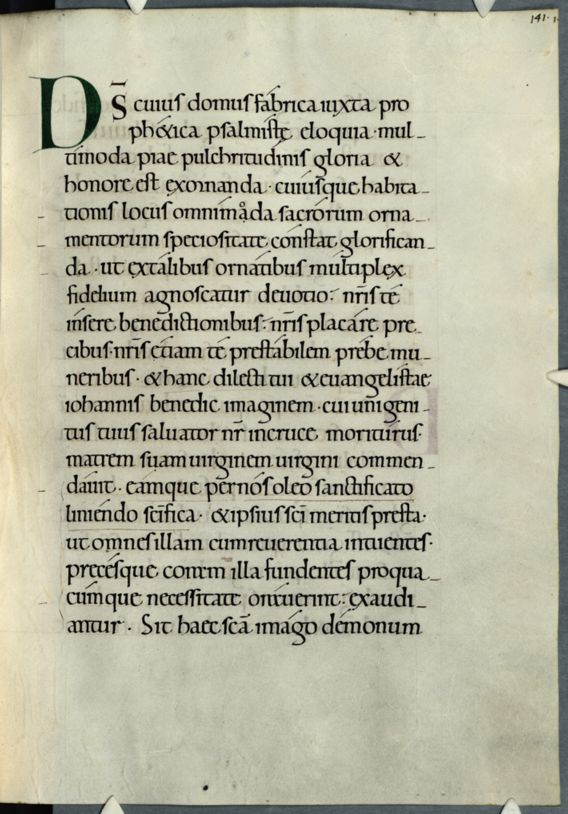 141.
DS̄ cuius domus fabrica iuxta pro
phetica psalmistę eloquia · mul_
timoda piae pulchritudinis gloria &
honore est exornanda · cuiusque habita_
tionis locus omnimoda sacrorum orna_
mentorum speciositate constat glorifican_
da · ut extalibus ornatibus multiplex
fidelium agnoscatur deuotio : nr̄is te
insere benedictionibus : nr̄is placare pre_
cibus · nr̄is etiam te prestabilem prębe mu_
neribus · & hanc dilecti tui & euangelistae
iohannis benedic imaginem · cui unigeni_
tus tuus saluator nr̄ incruce moriturus·
matrem suam uirginem uirgini commen_
dauit · eamque per nos oleo sanctificato
liniendo sc̄ifica · & ipsius sc̄i meritis presta·
ut omnes illam cum reuerentia intuentes·
precesque coram illa fundentes pro qua_
cumque necessitate orauerint : exaudi_
antur · Sit haec sc̄a imago demonum